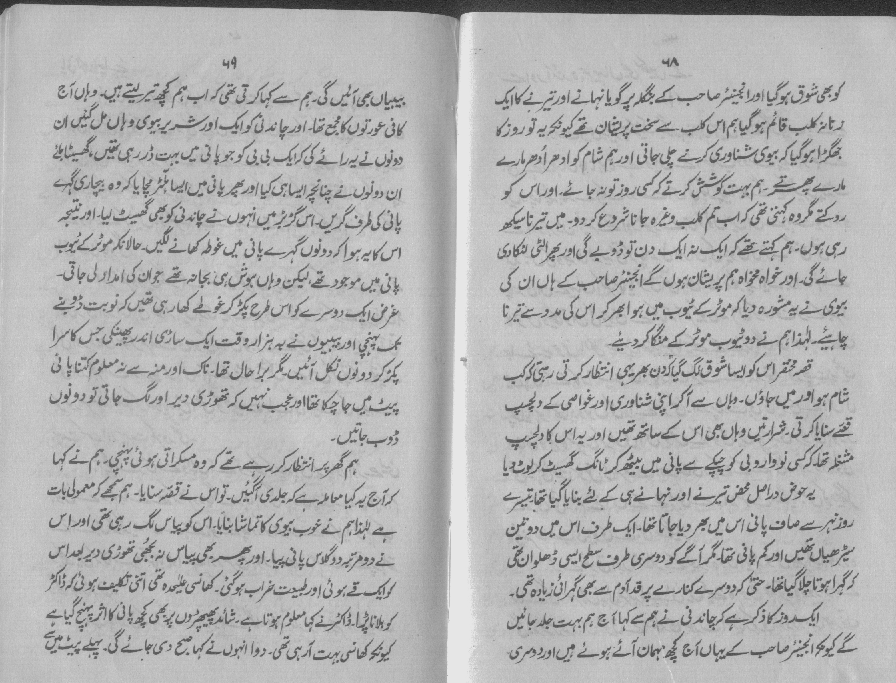 ۶۸
کو بھی شوق ہو گیا اور انجینئر صاحب کے بنگلہ پر گویا نہانے اور تیرنے کا ایک
زنانہ کلب قائم ہو گیا ہم اس کلب سے سخت پریشان تھے کیونکہ یہ تو روز کا
جھگڑا ہو گیا کہ بیوی شناوری کرنے چلی جاتی اور ہم شام کو ادھر اُدھر مارے
مارے پھرتے۔ ہم بہت کوشش کرتے کہ کسی روز تو نہ جائے۔ اور اس کو
روکتے مگر وہ کہتی تھی کہ اب تم کلب وغیرہ جانا شروع کر دو۔ میں تیرنا سیکھ
رہی ہوں۔ ہم کہتے تھے کہ ایک نہ ایک دن تو ڈوبے گی اور پھر الٹی لٹکا دی
جائے گی۔ اور خواہ مخواہ ہم پریشان ہوں گے انجینئر صاحب کے ہاں ان کی
بیوی نے یہ مشورہ دیا کہ موٹر کے ٹیوب میں ہوا بھر کر اس کی مدد سے تیرنا
چاہیئے۔ لہٰذا ہم نے دو ٹیوب موٹر کے منگا کر دیئے۔
قصہ مختصر اس کو ایسا شوق لگ گیا کہ دن بھر یہی انتظار کرتی رہتی کہ کب
شام ہو اور میں جاؤں۔ وہاں سے آ کر اپنی شناوری اور غواصی کے دلچسپ
قصّے سنایا کرتی۔ شرارتیں وہاں بھی اس کے ساتھ تھیں اور یہ اس کا دلچسپ
مشغلہ تھا کہ کسی نووارد بی بی کو چپکے سے پانی میں بیٹھ کر ٹانگ گھسیٹ کر لوٹ دیا
یہ حوض دراصل محض تیرنے اور نہانے ہی کے لئے بنایا گیا تھا، تیسرے
روز نہر سے صاف پانی اس میں بھر دیا جاتا تھا۔ ایک طرف اس میں دو تین
سیڑھیاں تھیں اور کم پانی تھا۔ مگر آگے کو دوسری طرف سطح ایسی ڈھلوان تھی
کہ گہرا ہوتا چلا گیا تھا۔ حتیٰ کہ دوسرے کنارے پر قد آدم سے بھی گہرائی زیادہ تھی۔
ایک روز کا ذکر ہے کہ چاندنی نے ہم سے کہا آج ہم بہت جلد جائیں
گے کیونکہ انجینئر صاحب کے یہاں آج کچھ مہمان آئے ہوئے ہیں اور دوسری
۶۹
بیبیاں بھی آئیں گی۔ ہم سے کہا کرتی تھی کہ اب ہم کچھ تیر لیتے ہیں۔ وہاں آج
کافی عورتوں کا مجمع تھا۔ اور چاندنی کو ایک اور شریر بیوی وہاں مل گئیں ان
دونوں نے یہ رائے کی کہ ایک بی بی کو جو پانی میں بہت ڈر رہی تھیں، گھسیٹا جائے
ان دونوں نے چنانچہ ایسا ہی کیا اور پھر پانی میں ایسا ہلّڑ مچایا کہ وہ بیچاری گہرے
پانی کی طرف گریں۔ اس گڑبڑ میں انہوں نے چاندنی کو بھی گھسیٹ لیا۔ اور نتیجہ
اس کا یہ ہوا کہ دونوں گہرے پانی میں غوطہ کھانے لگیں۔ حالانکہ موٹر کے ٹیوب
پانی میں موجود تھے، لیکن وہاں ہوش ہی بجا نہ تھے جو ان کی امداد لی جاتی۔
غرض ایک دوسرے کو اس طرح پکڑ کر غوطے کھا رہی تھیں کہ نوبت ڈوبنے
تک پہنچی اور بیبیوں نے بہ ہزار وقت ایک ساڑی اندر پھینکی جس کا سرا
پکڑ کر دونوں نکل آئیں۔ مگر برا حال تھا۔ ناک اور منہ سے نہ معلوم کتنا پانی
پیٹ میں جا چکا تھا اور عجب نہیں کہ تھوڑی دیر اور لگ جاتی تو دونوں
ڈوب جاتیں۔
ہم گھر پر انتظار کر رہے تھے کہ وہ مسکراتی ہوئی پہنچی۔ ہم نے کہا
کہ آج یہ کیا معاملہ ہے کہ جلدی آ گئیں۔ تو اس نے قصّہ سنایا۔ ہم سمجھے کہ معمولی بات
ہے لہٰذا ہم نے خوب بیوی کا تماشا بنایا۔ اس کو پیاس لگ رہی تھی اور اس
نے دو مرتبہ دو گلاس پانی پیا۔ اور پھر بھی پیاس نہ بجھی تھوڑی دیر بعد اس
کو ایک قے ہوئی اور طبیعت خراب ہو گئی۔ کھانسی علیٰحدہ تھی اتنی تکلیف ہوئی کہ ڈاکٹر
کو بلانا پڑا۔ ڈاکٹر نے کہا معلوم ہوتا ہے۔ شائد پھیپھڑوں پر بھی کچھ پانی کا اثر پہنچ گیا ہے
کیونکہ کھانسی بہت آ رہی تھی۔ دوا انہوں نے کہا صبح دی جائے گی۔ پہلے پیٹ میں سے